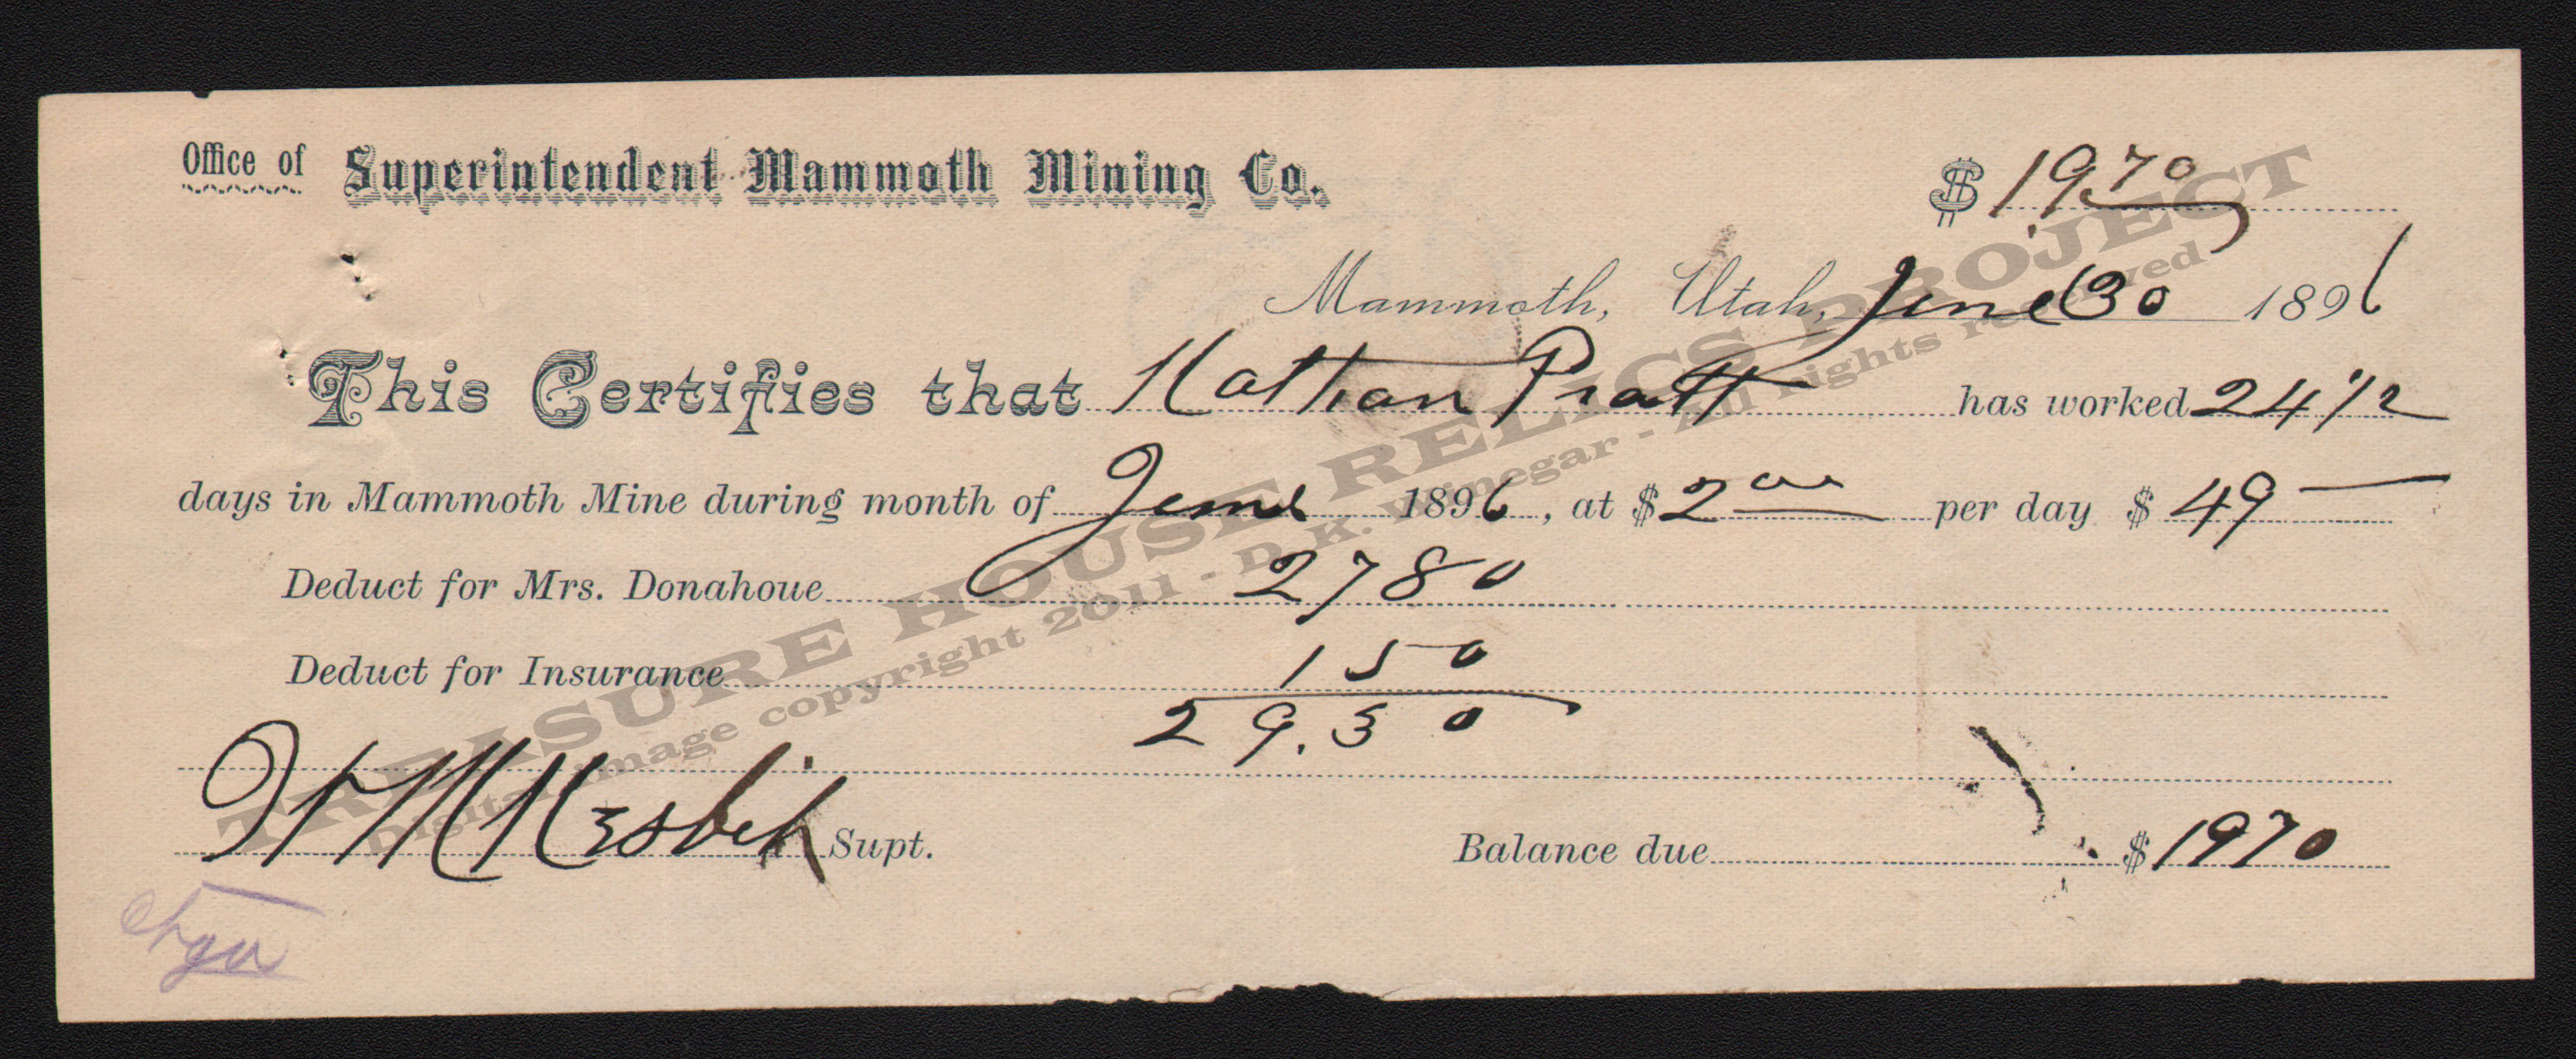 Office of Superintendent Mammoth Mining Co. $ 19.70
Mammoth, Utah, June 30 1896
This Certifies that Nathan Pratt has worked 24 1/2
days in Mammoth Mine during month of June 1896, at $ 2 00 per day $ 49 —
Deduct for Mrs. Donahoue 2780
Deduct for Insurance 150
29.30
Supt. Balance due $ 1970
TREASURE HOUSE RELICS PROJECT
Digital image copyright 2011 - D.K. Winegar - All rights reserved